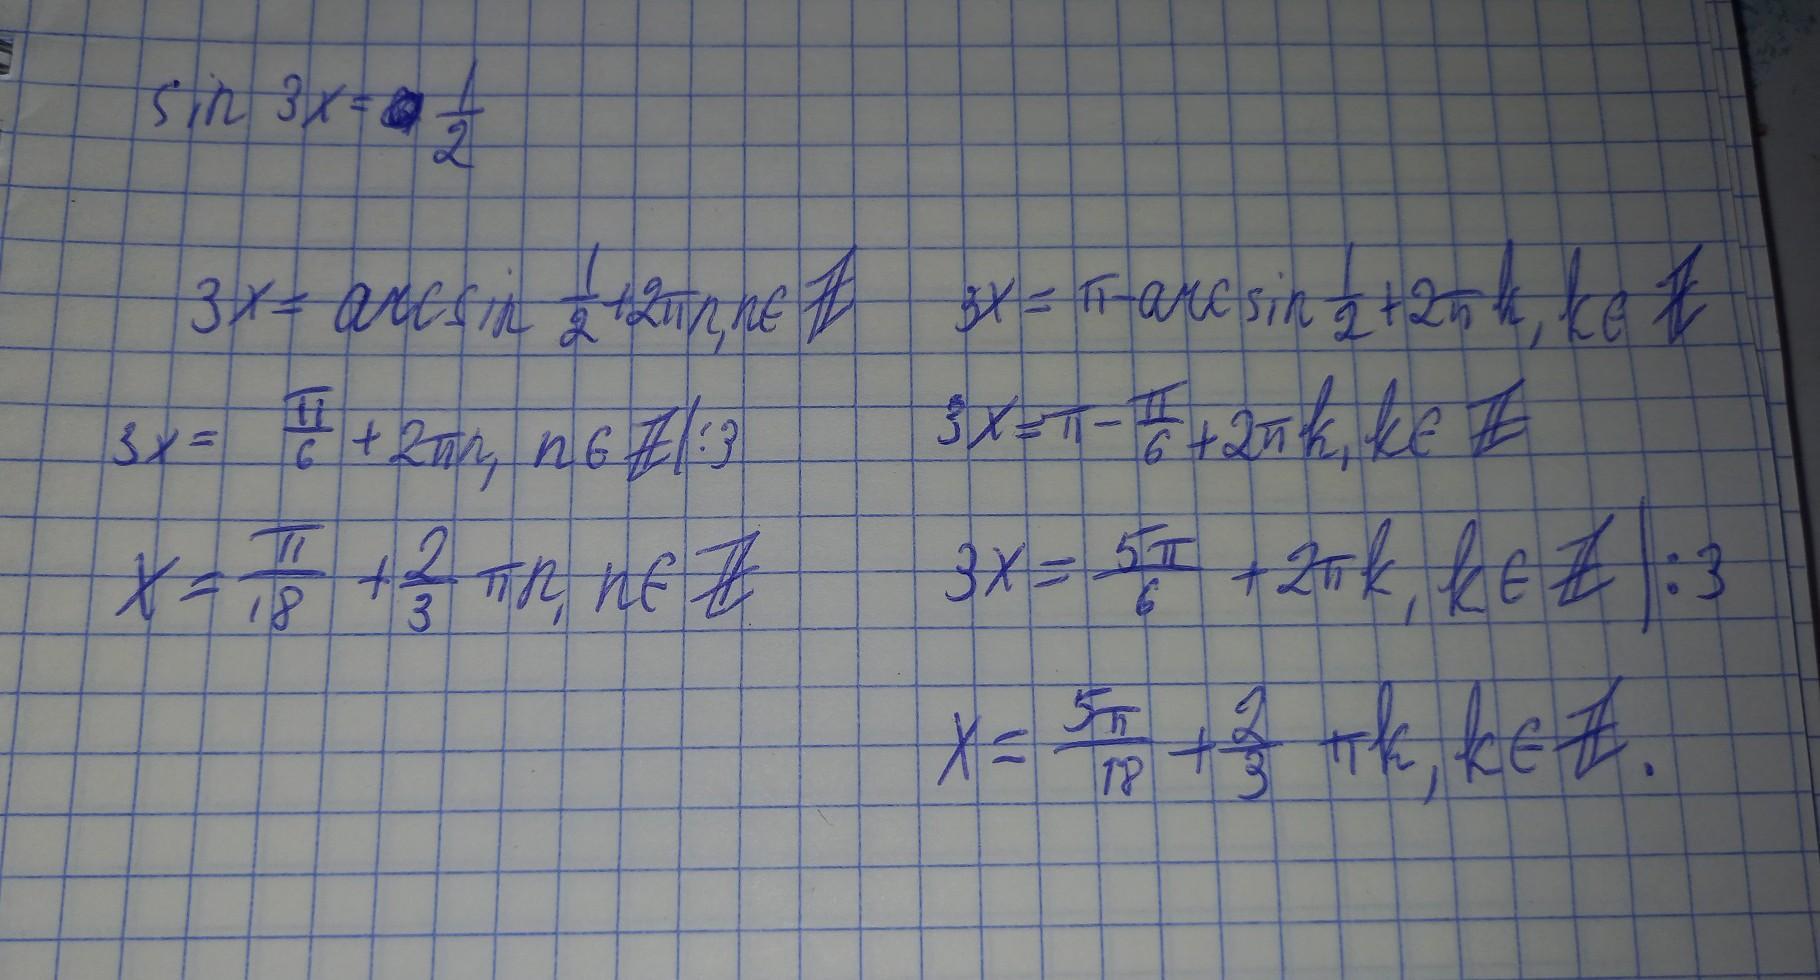 sin 3x = 1/2
3x = arcsin 1/2 + 2πn, n ∈ ℤ
3x = π/6 + 2πn, n ∈ ℤ |:3
x = π/18 + 2/3 πn, n ∈ ℤ
3x = π - arcsin 1/2 + 2πk, k ∈ ℤ
3x = π - π/6 + 2πk, k ∈ ℤ
3x = 5π/6 + 2πk, k ∈ ℤ |:3
x = 5π/18 + 2/3 πk, k ∈ ℤ.